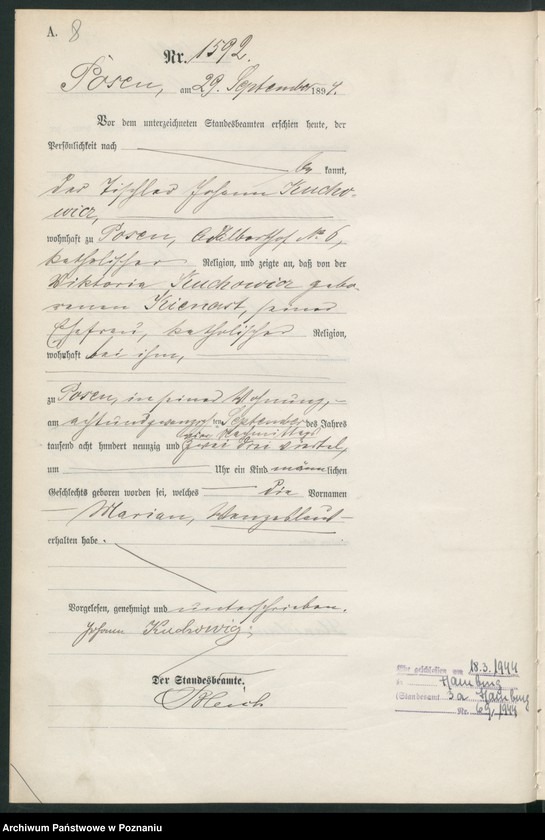 A. 8
Nr. 1592.
Posen, am 29. September 1894.
Vor dem unterzeichneten Standesbeamten erschien heute, der
Persönlichkeit nach
be kannt,
der Tischler Johann Kucho-
wicz,
wohnhaft zu Posen, Adalberthof No 6,
katholischer Religion, und zeigte an, daß von der
Viktoria Kuchowicz gebo-
renen Kienast, seiner
Ehefrau, katholischer Religion,
wohnhaft bei ihm,
zu Posen, in seiner Wohnung,
am achtundzwanzigsten September des Jahres
tausend acht hundert neunzig und vier Nachmittags
zwei drei viertel,
um Uhr ein Kind männlichen
Geschlechts geboren worden sei, welches die Vornamen
Marian,
erhalten habe.
Vorgelesen, genehmigt und unterschrieben.
Johann Kuchowicz.
Der Standesbeamte.
Ehe geschlossen am 18.3.1944
in Hamburg
(Standesamt 3a Hamburg
Nr. 69/1944
Archiwum Państwowe w Poznaniu